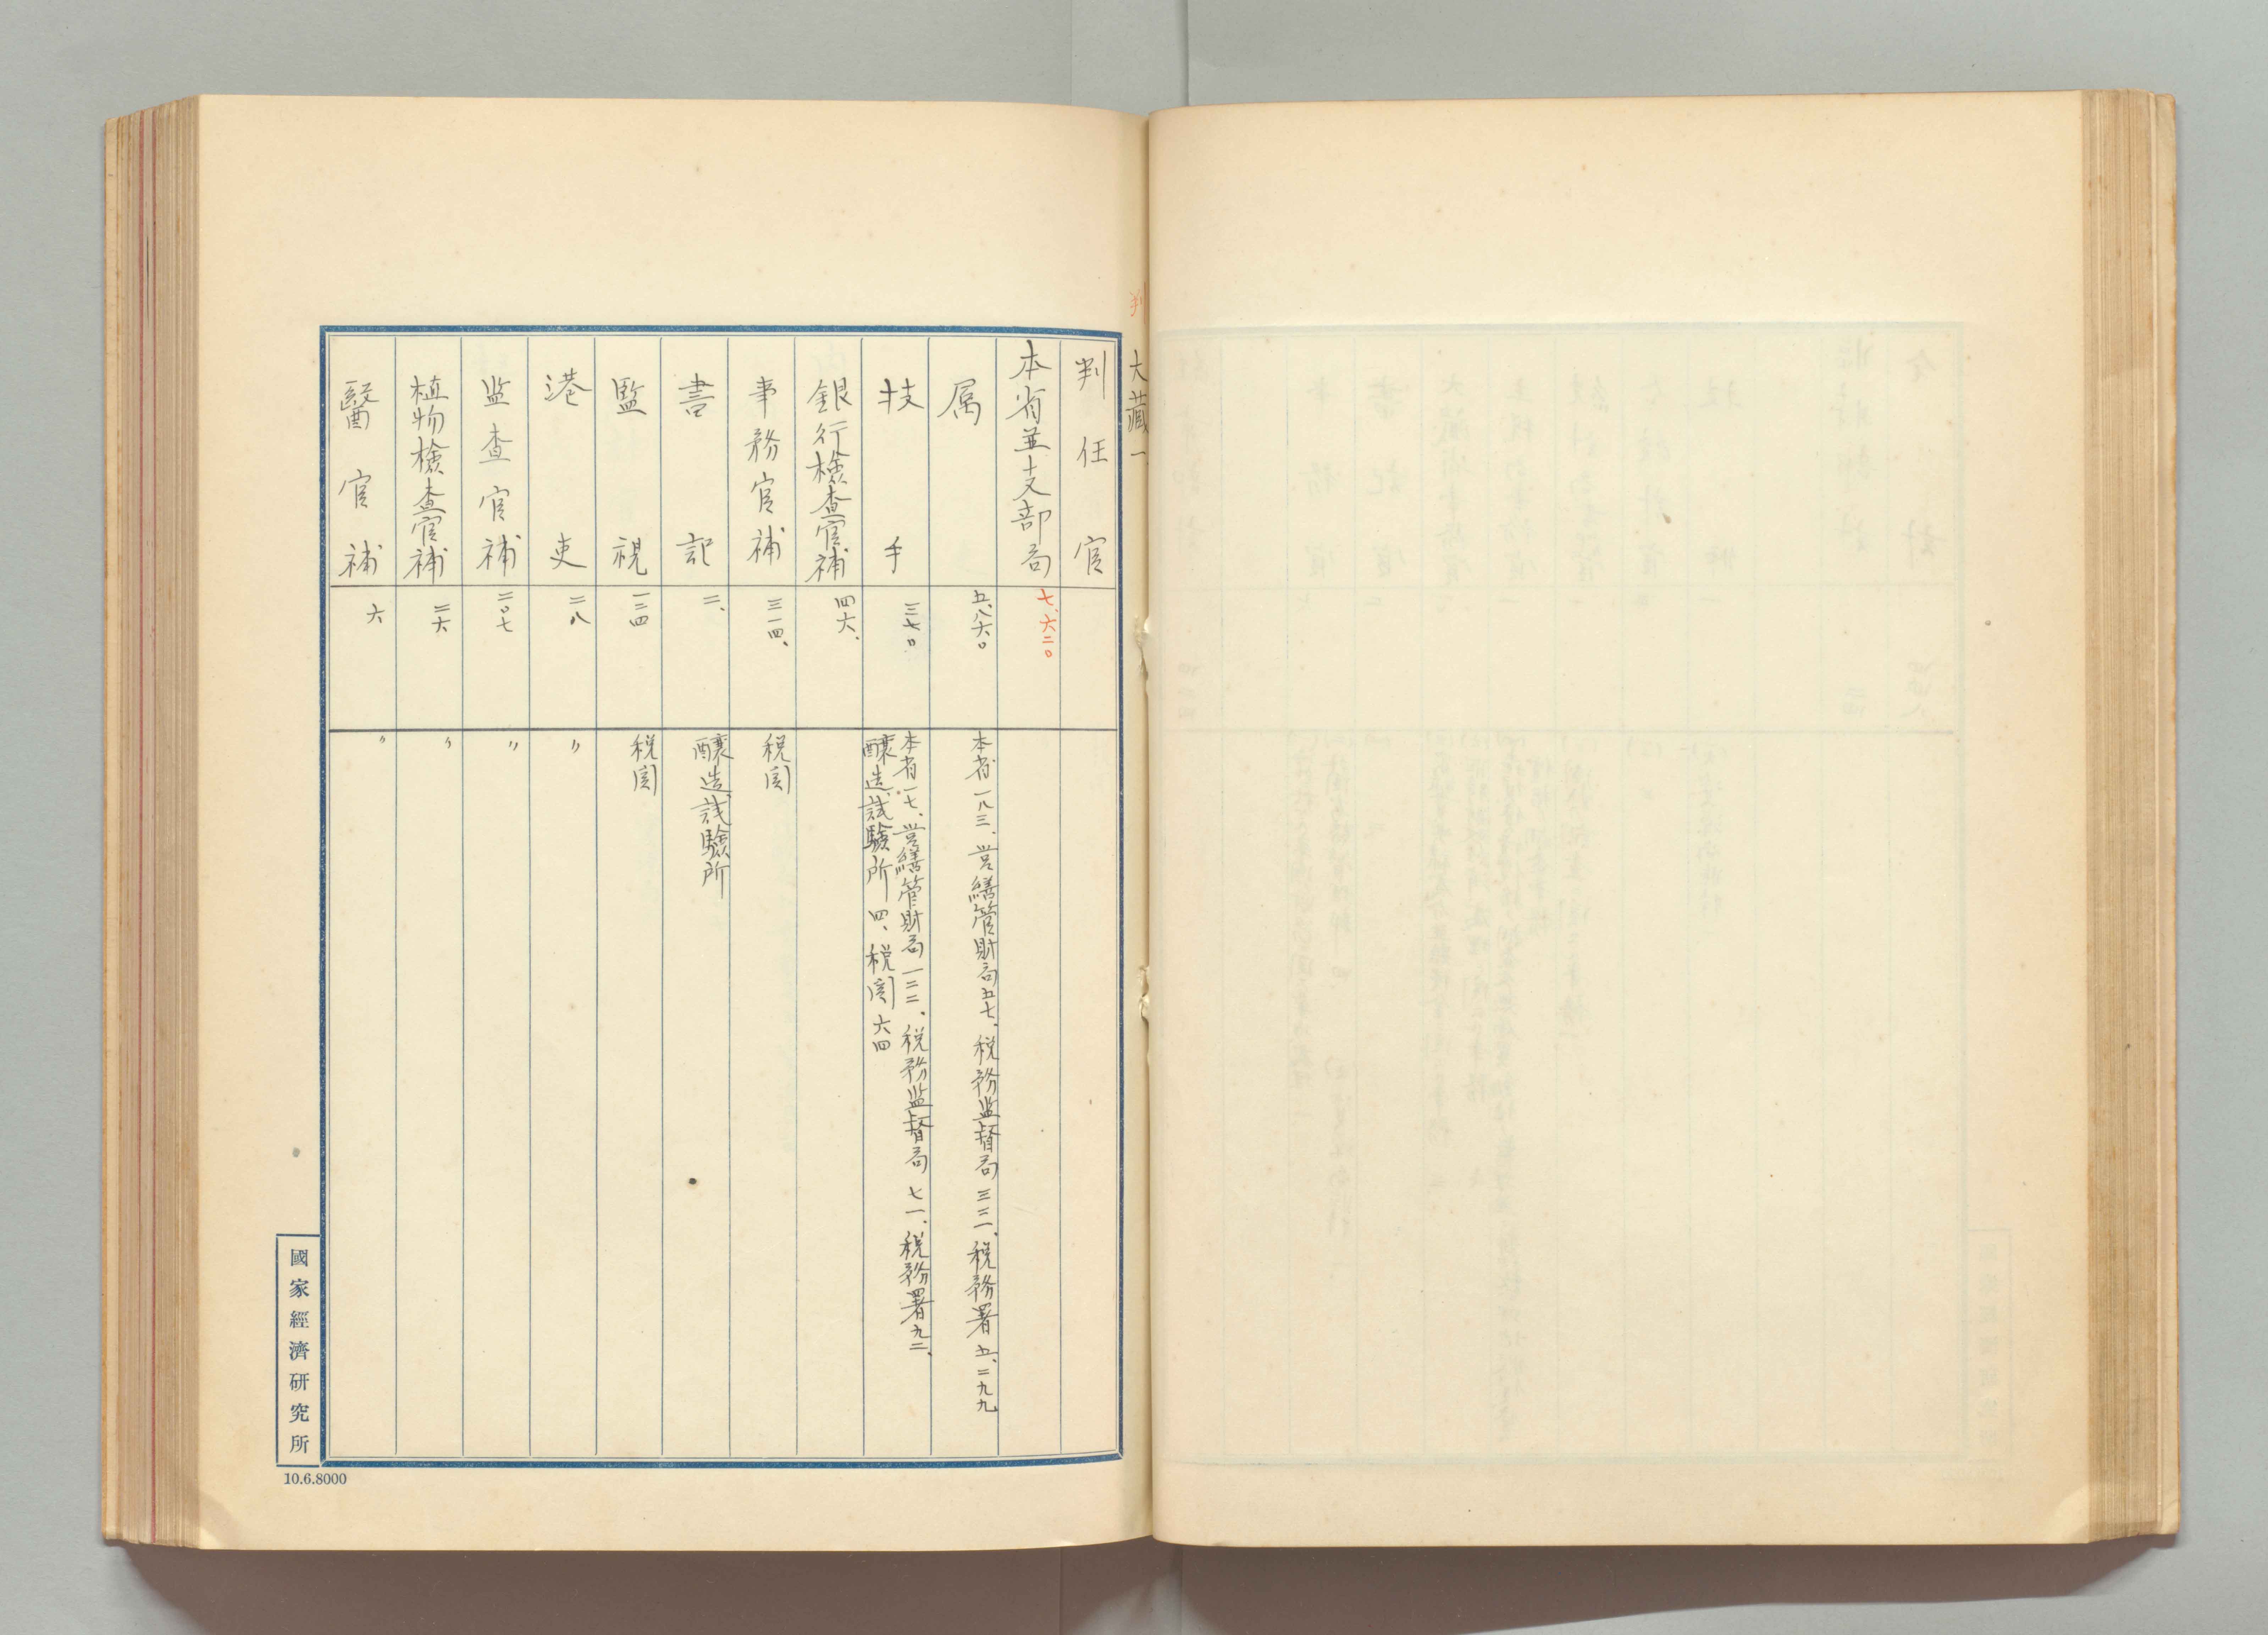 判
大藏一
判任官
本省並支部局 七、六二〇
属 五、八六〇 本省一八三、営繕管財局五七、税務监督局三二一、税務署五、二九九
技手 三七〇 本省一七、営繕管財局一二二、税務监督局七一、税務署九二、
醸造試驗所四、税関六四
銀行検査官補 四六、
事務官補 三一四、 税関
書記 二、 醸造試驗所
監視 一三四 税関
港吏 二八 〃
监查官補 二〇七 〃
植物檢查官補 二六 〃
醫官補 六 〃
國家經濟研究所
10.6.8000